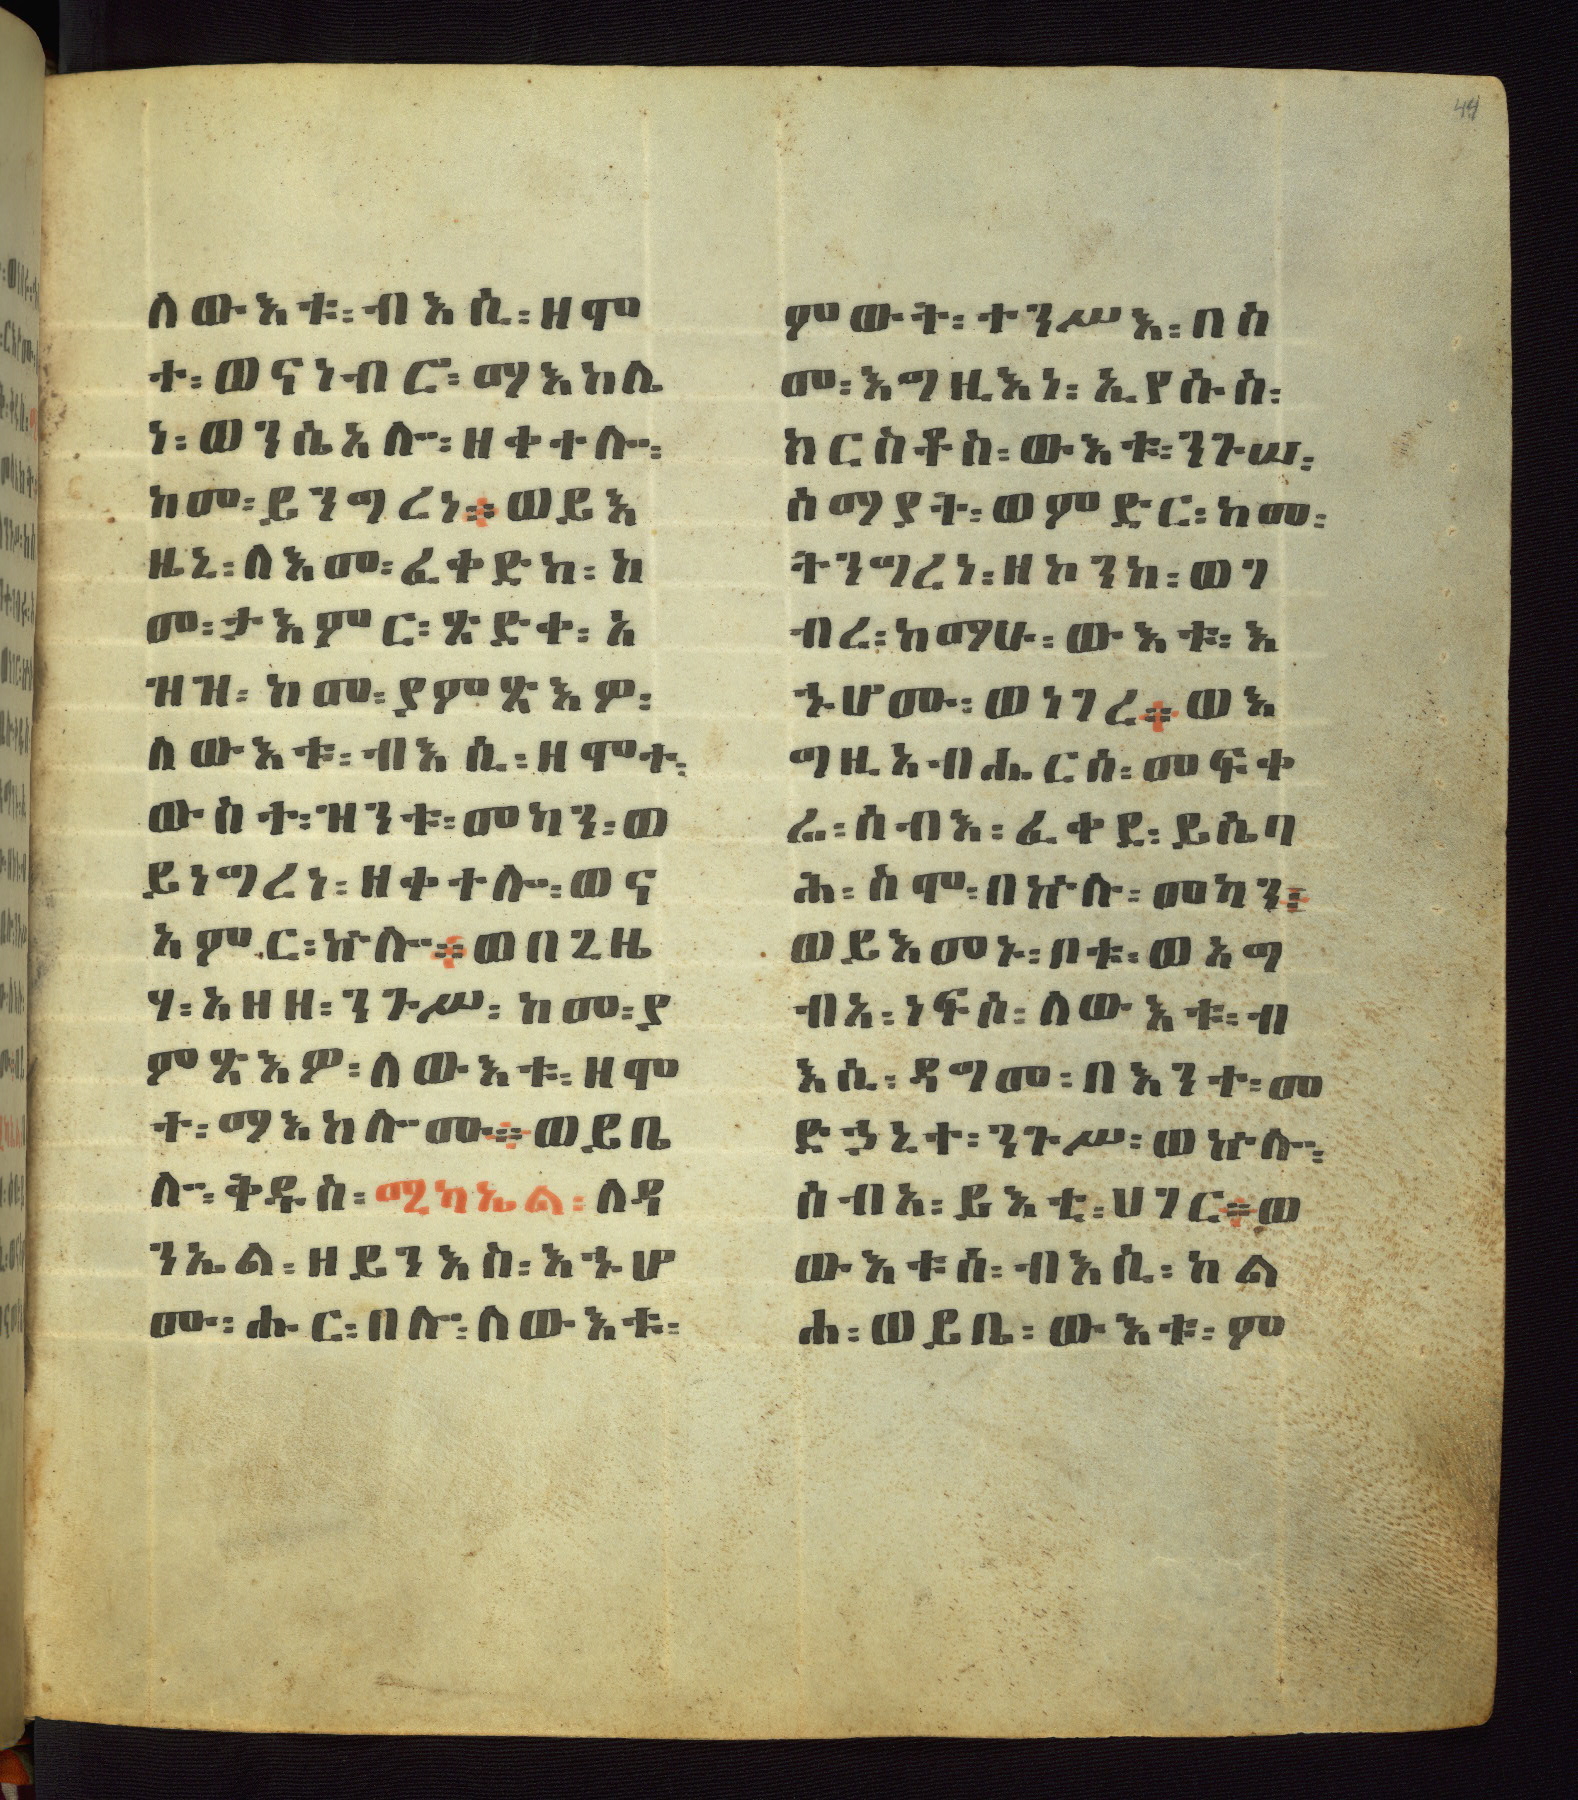 44
ለውእቱ፡ብእሲ፡ዘሞ
ተ፡ወናነብሮ፡ማእከሌ
ነ፡ወንሴአሎ፡ዘቀተሎ፡
ከመ፡ይንግረነ፡፡ወይእ
ዜኒ፡ለእመ፡ፈቀድከ፡ከ
መ፡ታእምር፡ጽድቀ፡አ
ዝዝ፡ከመ፡ያምጽእዎ፡
ለውእቱ፡ብእሲ፡ዘሞተ፡
ውስተ፡ዝንቱ፡መካን፡ወ
ይነግረነ፡ዘቀተሎ፡ወና
አምር፡ኵሎ፡፡ወበጊዜ
ሃ፡አዘዘ፡ንጉሥ፡ከመ፡ያ
ምጽእዎ፡ለውእቱ፡ዘሞ
ተ፡ማእከሎሙ፡፡ወይቤ
ሎ፡ቅዱስ፡ሚካኤል፡ለዳ
ንኤል፡ዘይንእስ፡እኁሆ
ሙ፡ሑር፡በሎ፡ለውእቱ፡
ምውት፡ተንሥእ፡በስ
መ፡እግዚእነ፡ኢየሱስ፡
ክርስቶስ፡ውእቱ፡ንጉሠ፡
ሰማያት፡ወምድር፡ከመ፡
ትንግረነ፡ዘኮንከ፡ወገ
ብረ፡ከማሁ፡ውእቱ፡እ
ኁሆሙ፡ወነገረ፡፡ወእ
ግዚአብሔርሰ፡መፍቀ
ሬ፡ሰብእ፡ፈቀደ፡ይሴባ
ሕ፡ስሞ፡በኵሉ፡መካን፡፡
ወይእመኑ፡ቦቱ፡ወአግ
ብአ፡ነፍሰ፡ለውእቱ፡ብ
እሲ፡ዳግመ፡በእንተ፡መ
ድኃኒተ፡ንጉሥ፡ወኵሎ፡
ሰብአ፡ይእቲ፡ሀገር፡፡ወ
ውእቱሰ፡ብእሲ፡ከል
ሐ፡ወይቤ፡ውእቱ፡ም